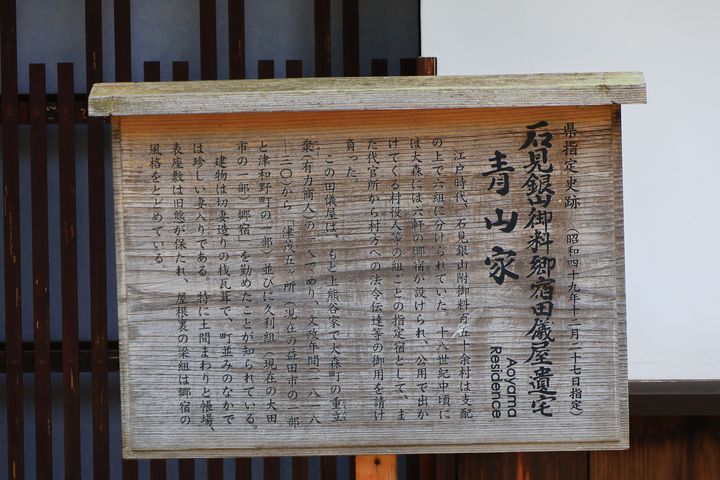 県指定史跡 (昭和四十九年十二月二十七日指定)
石見銀山御料郷宿田儀屋遺宅
青山家
Aoyama
Residence
江戸時代、石見銀山附御料百五十余村は支配
の上で六組に分けられていた。十八世紀中頃に
は大森には六軒の郷宿が設けられ、公用で出か
けてくる村役人等の組ごとの指定宿として、ま
た代官所から村方への法令伝達等の御用を請け
負った。
この田儀屋は、もと上熊谷家で大森町の重立
衆(有力商人)の一人であり、文政年間(一八一八
―三〇)から「津茂五ヶ所(現在の益田市の一部
と津和野町の一部)並びに久利組(現在の大田
市の一部)郷宿」を勤めたことが知られている。
建物は切妻造りの桟瓦葺で、町並みのなかで
は珍しい妻入りである。特に土間まわりと帳場、
表座敷は旧態が保たれ、屋根裏の梁組は郷宿の
風格をとどめている。